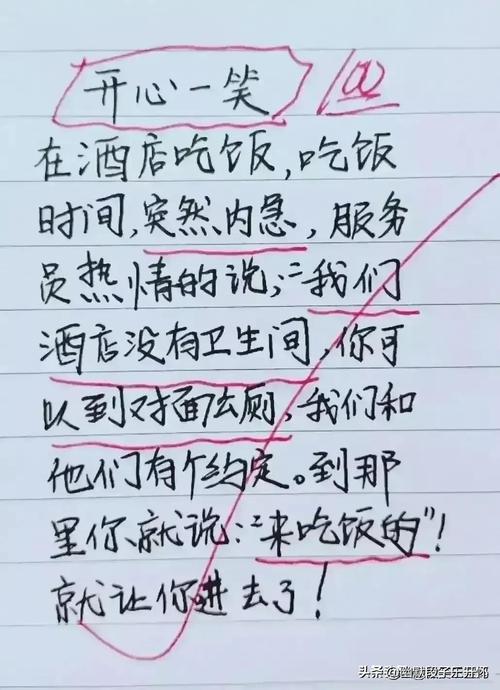 开心一笑 100
在酒店吃饭,吃饭
时间,突然内急,服务
员热情的说;"我们
酒店没有卫生间,你可
以到对面公厕,我们和
他们有个约定。到那
里你就说:"来吃饭的"!
就让你进去了!
头条@幽默段子乐开怀